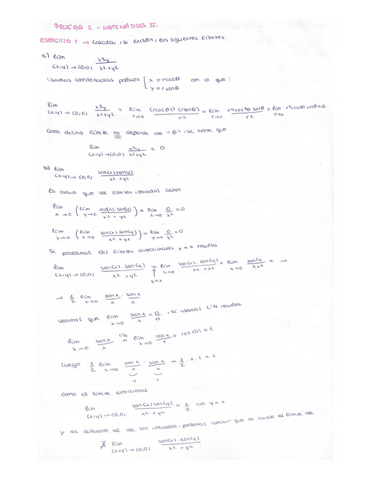 PRUEBA 2 - MATEMÁTICAS II.
EJERCICIO 1 → Calcular, si existen, los siguientes límites
a) lím (x,y)→(0,0) x³y / x²+y²
Usamos coordenadas polares { x = r cosθ y = r senθ con lo que:
lím (x,y)→(0,0) x³y / x²+y² = lím r→0 / r² = lím r→0 / r² = lím r→0
Como dicho límite no depende de «θ», se tiene que
lím (x,y)→(0,0) / x²+y² = 0
b) lím (x,y)→(0,0) sen(x)sen(y) / x²+y²
Es claro que los límites iterados salen
lím x→0 ( lím y→0 sen(x)·sen(y) / x²+y² ) = lím x→0 0/x² = 0
lím y→0 ( lím x→0 sen(x)·sen(y) / x²+y² ) = lím y→0 0/y² = 0
Si probamos los límites direccionales y = x resulta
lím (x,y)→(0,0) sen(x)·sen(y) / x²+y² = y=x lím x→0 sen(x)·sen(x) / x²+x² = lím x→0 sen²x / 2x² = →
→ 1/2 lím x→0 sen x / x · sen x / x
veamos que lím x→0 sen x / x = 0/0, si usamos L'H resulta
lím x→0 sen x / x L'H = lím x→0 cos x / 1 = cos(0) = 1
luego 1/2 lím x→0 sen x / x · sen x / x = 1/2 · 1 · 1 =
Como el límite direccional
lím (x,y)→(0,0) sen(x)sen(y) / x²+y² = 1/2 con y = x
y es diferente de los iterados, podemos concluir que no existe el límite de
∄ lím (x,y)→(0,0) sen(x)·sen(y) / x²-y²